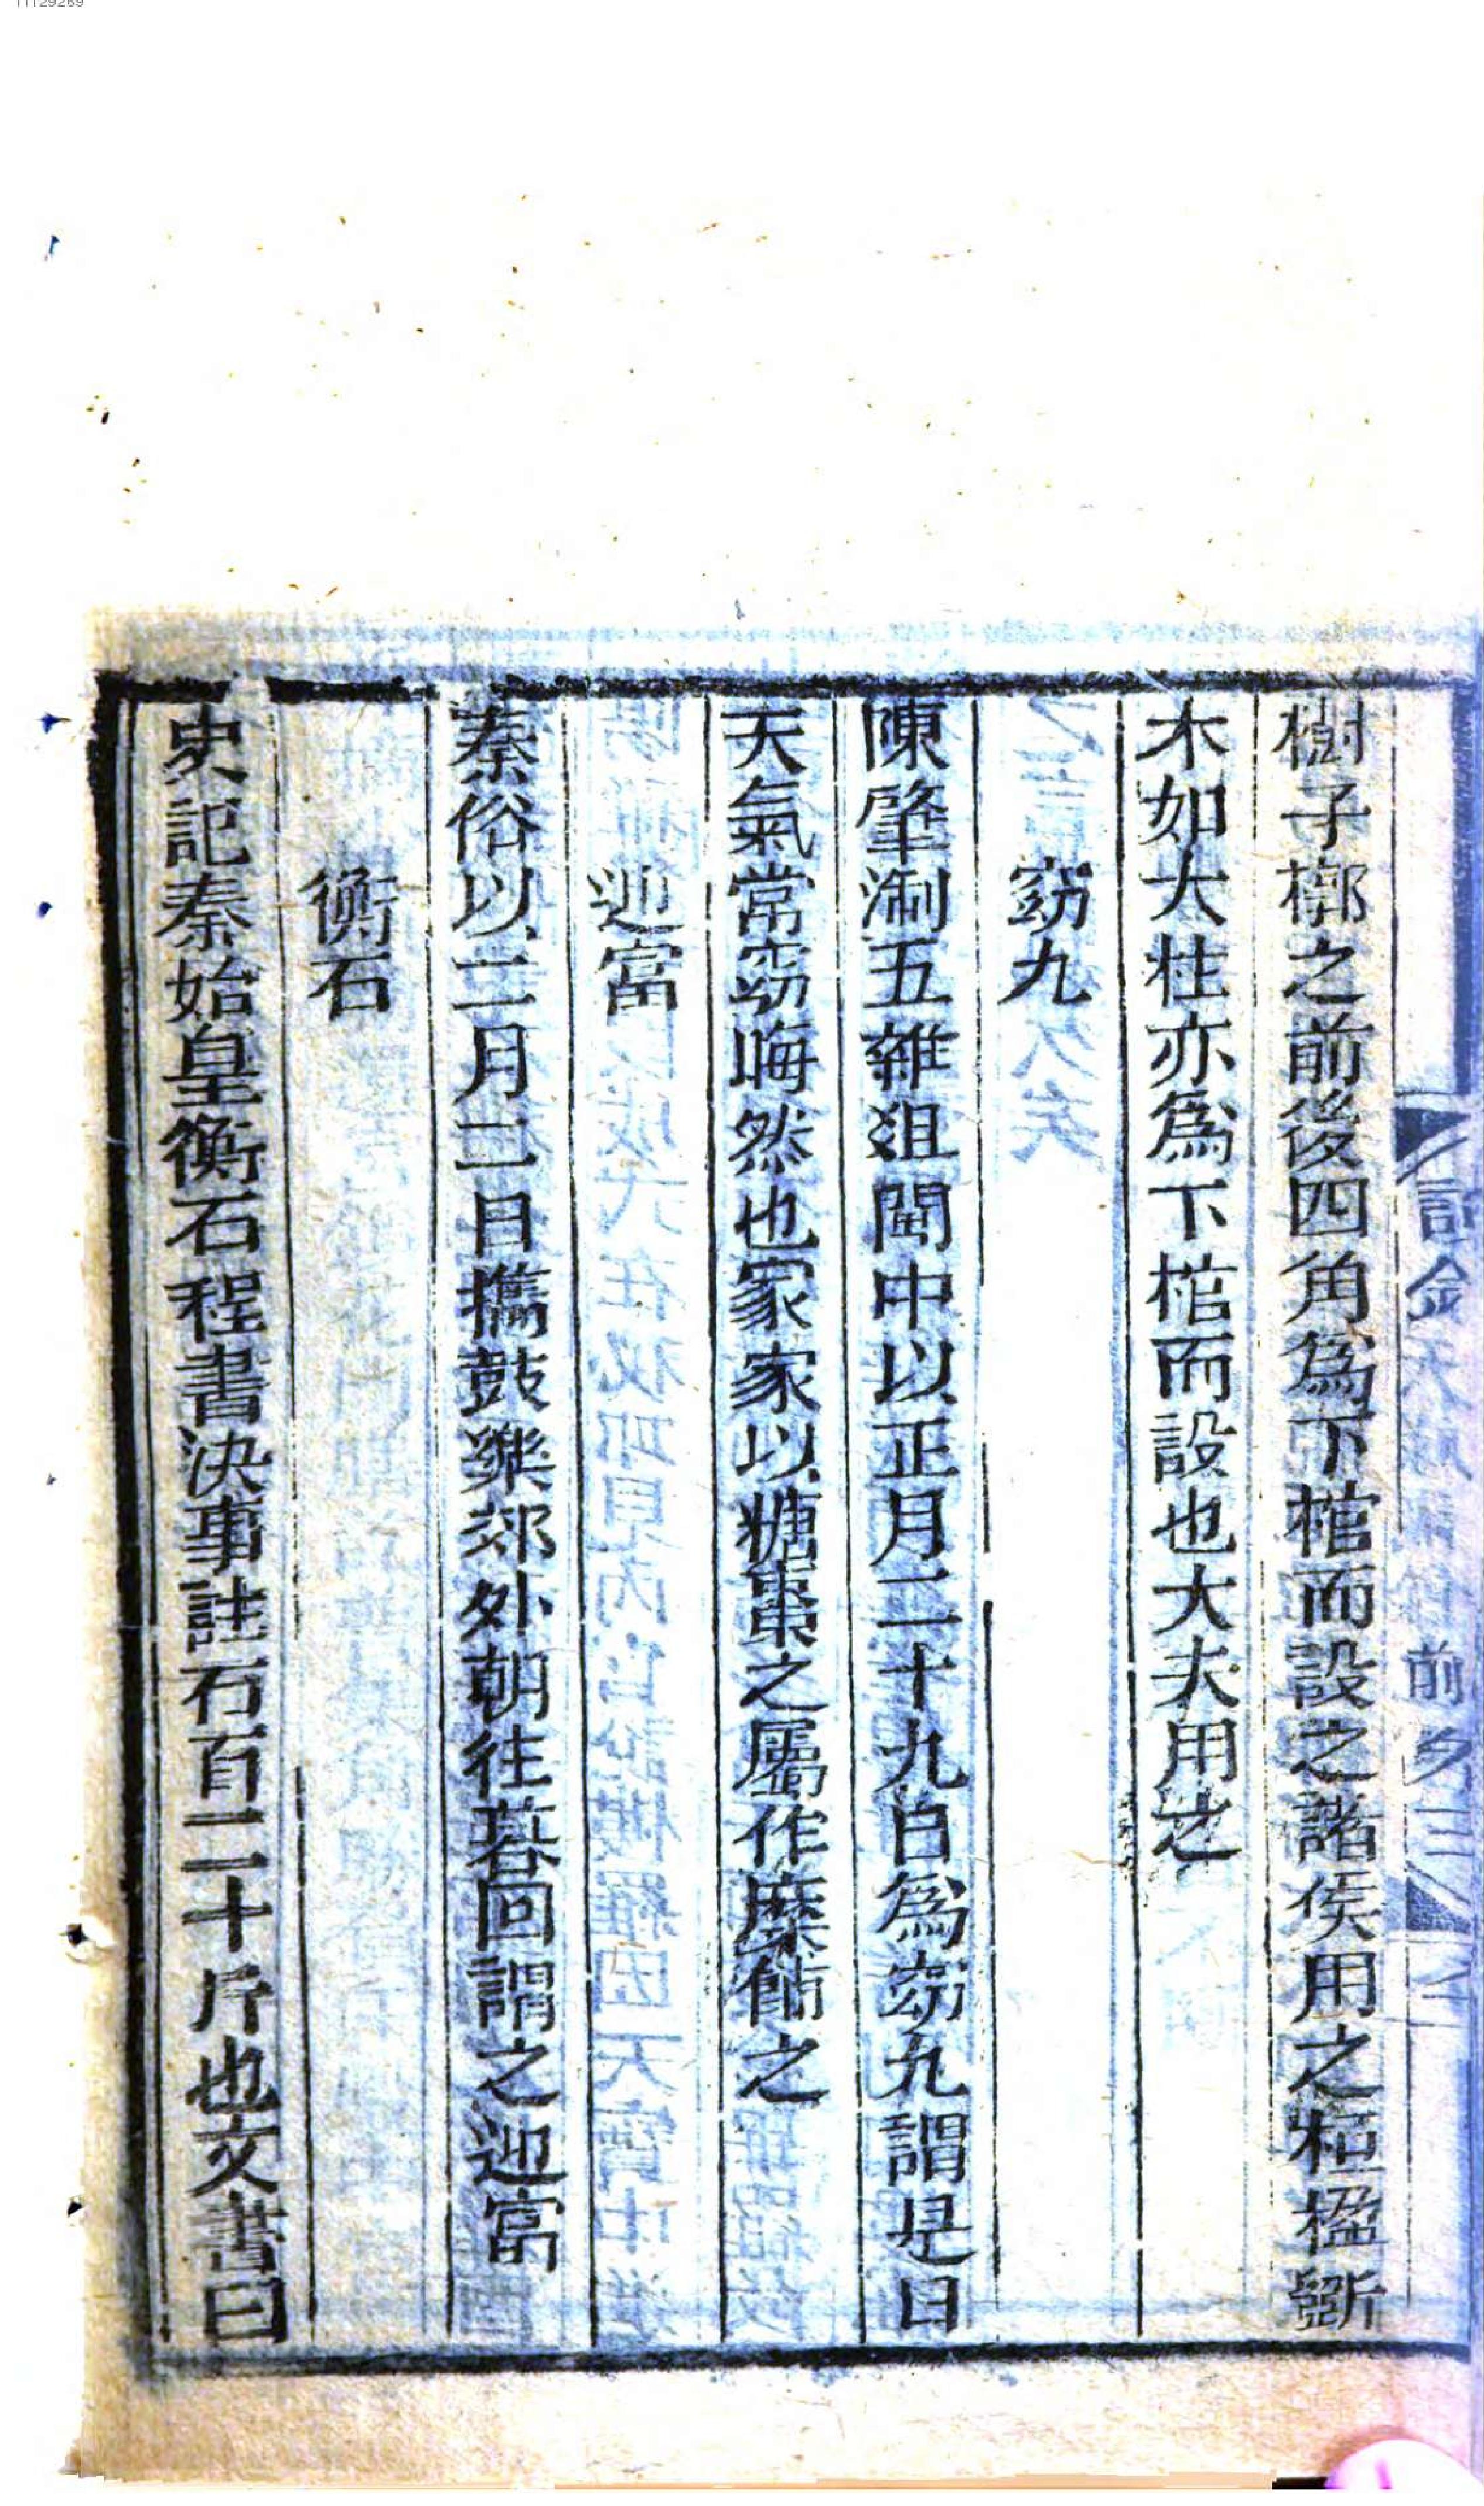 樹子槨之前後四角爲下棺而設之諸侯用之桓楹斲
木如大柱亦爲下棺而設也大夫用之
窈九
陳肇淛五雜俎閩中以正月二十九日爲窈九謂是日
天氣常窈晦然也家家以糖棗之屬作糜餉之
迎富
秦俗以二月二日攜鼓樂郊外朝往暮回謂之迎富
衡石
史記秦始皇衡石程書決事註石百二十斤也文書日
前夕三